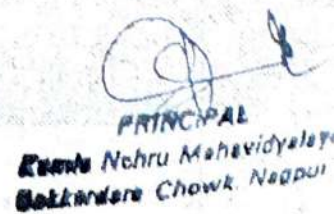 PRINCIPAL
Kamla Nehru Mahavidyalaya
Sakkardara Chowk, Nagpur